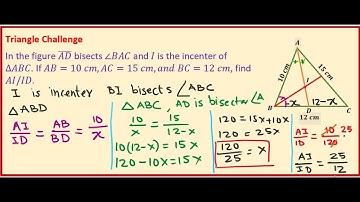 Triangle Challenge
In the figure AD bisects ∠BAC and I is the incenter of
ΔABC. If AB = 10 cm, AC = 15 cm, and BC = 12 cm, find
AI/ID.
I is incenter BI bisects ∠ABC
Δ ABD
AI/ID = AB/BD = 10/x
Δ ABC, AD is bisector ∠A
10/x = 15/(12-x)
10(12-x) = 15x
120-10x = 15x
120 = 15x+10x
120 = 25x
120/25 = x
AI/ID = 10·25/120
AI/ID = 25/12
A
10 cm
15 cm
I
x
12-x
B
D
C
12 cm